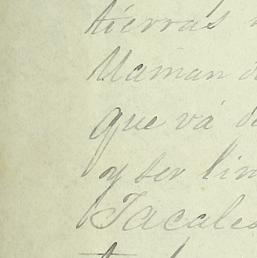 tierras
llaman
que vá
y ser lin
Tacales